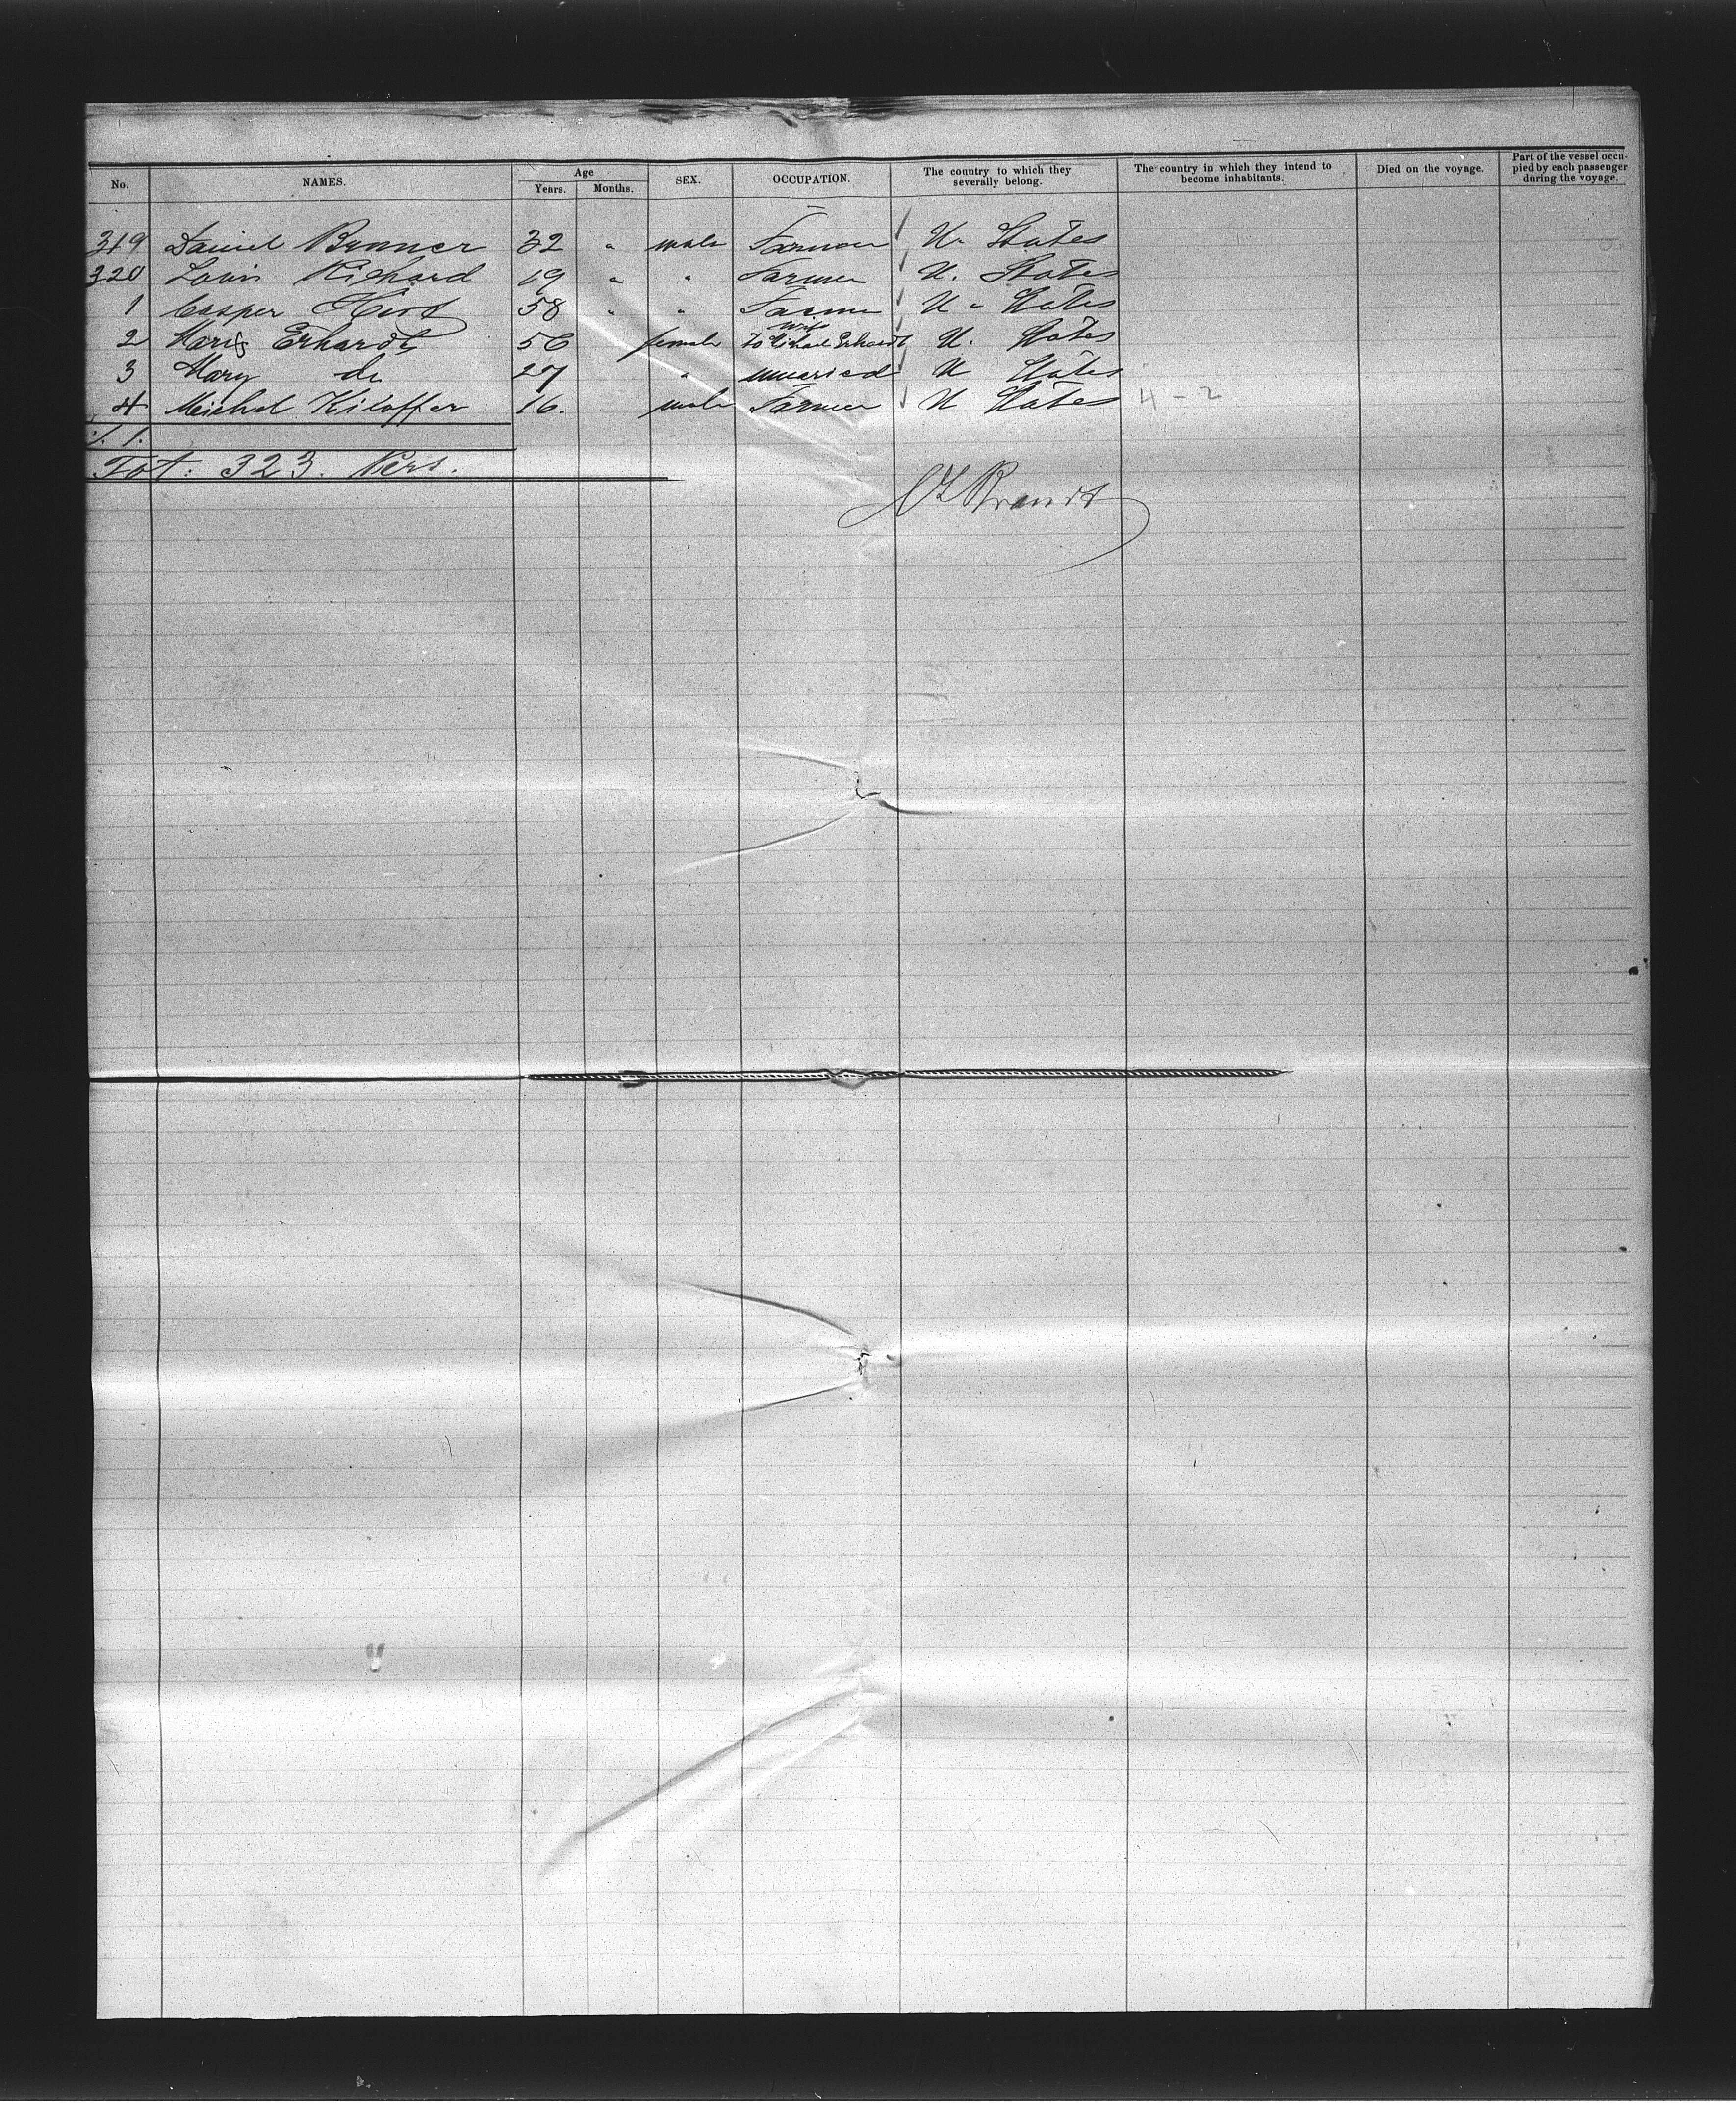 No. NAMES. Age Years. Months. SEX. OCCUPATION. The country to which they severally belong. The country in which they intend to become inhabitants. Died on the voyage. Part of the vessel occupied by each passenger during the voyage.
319 Daniel Brunner 32 " male Farmer U. States
320 Louis Richard 19 " " Farmer U. States
1 Casper 58 " " Farmer U. States
2 Erhardt 56 female wife to Michael Erhardt U. States
3 Mary do 27 " unmaried U States
4 Michel Kiloffer 16. male Farmer U States 4 - 2
./. 1.
Tot: 323. Pers.
Brandt